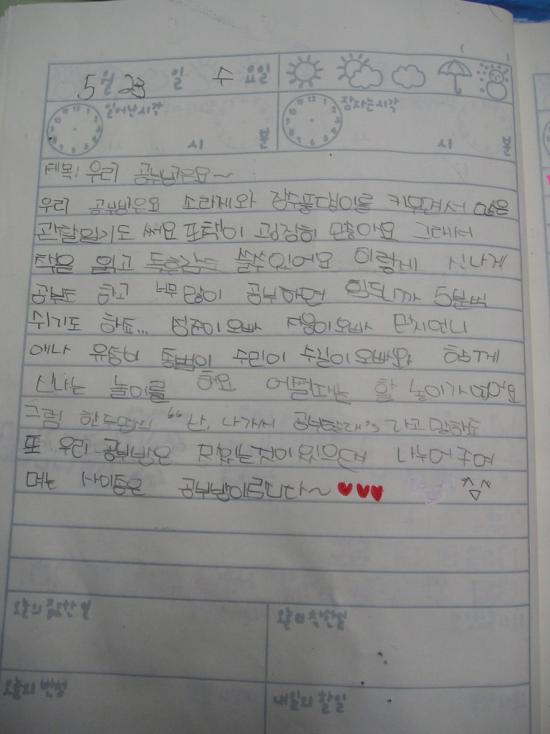 5월 23일 수요일
일어난시각 시 분 잠자는시각 시 분
제목: 우리 공부방은요~
우리 공부방은요 소라게와 장수풍뎅이를 키우면서
관찰일기도 써요 또 책이 굉장히 많아요 그래서
책을 읽고 독후감도 쓸수있어요 이렇게 신나게
공부도 하고 너무 많이 공부하면 안되니까 5분씩
쉬기도 하죠... 오빠 오빠 언니
수민이 오빠와 함께
신나는 놀이를 해요 어쩔때는 할 놀이가 없어요
그럼 한두명씩 "난, 나가서 공부할래"라고 말하죠
또 우리 공부방은 맛있는것이있으면 나누어주며
사이좋은 공부방이 됩니다~
오늘의 중요한 일 오늘의 착한일
오늘의 반성 내일의 할일